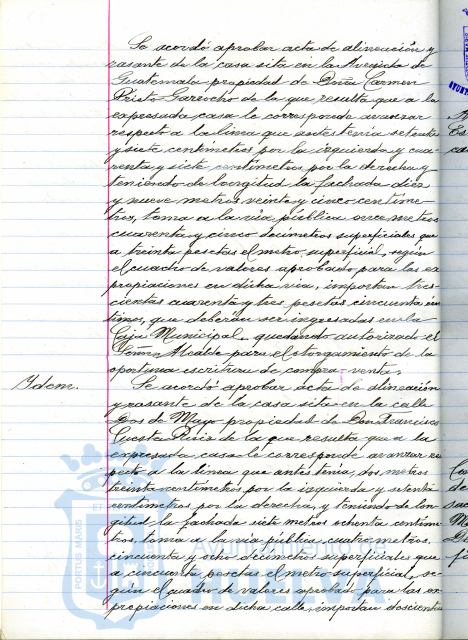 Se acordó aprobar acta de alineación y
rasante de la casa sita en la Avenida de
Guatemala propiedad de Doña Carmen
Prieto Garrocho de la que resulta que a la
expresada casa le corresponde avanzar
respecto a la linea que antes tenia setenta
y siete centímetros por la izquierda y cua-
renta y siete centímetros por la derecha y
teniendo de longitud la fachada diez
y nueve metros veinte y cinco centíme-
tros, toma a la vía pública once metros
cuarenta y cinco decímetros superficiales que
a treinta pesetas el metro superficial, según
el cuadro de valores aprobado para las ex
propiaciones en dicha via, importan tres-
cientas cuarenta y tres pesetas cincuenta cen
timos, que deberán ser ingresadas en la
Caja Municipal, quedando autorizado el
Señor Alcalde para el otorgamiento de la
oportuna escritura de compra-venta.
Idem.
Se acordó aprobar acta de alineación
y rasante de la casa sita en la calle
Dos de Mayo propiedad de Don Francisco
Cuesta de la que resulta que a la
expresada casa le corresponde avanzar res
pecto a la linea que antes tenia, dos metros
treinta centímetros por la izquierda y setenta
centímetros por la derecha, y teniendo de lon
gitud la fachada siete metros ochenta centíme
tros, toma a la vía pública, cuatro metros,
cincuenta y ocho decímetros superficiales que
a cincuenta pesetas el metro superficial, se-
gún el cuadro de valores aprobado para las ex
propiaciones en dicha calle, importan doscientas
PORTUS MARIS